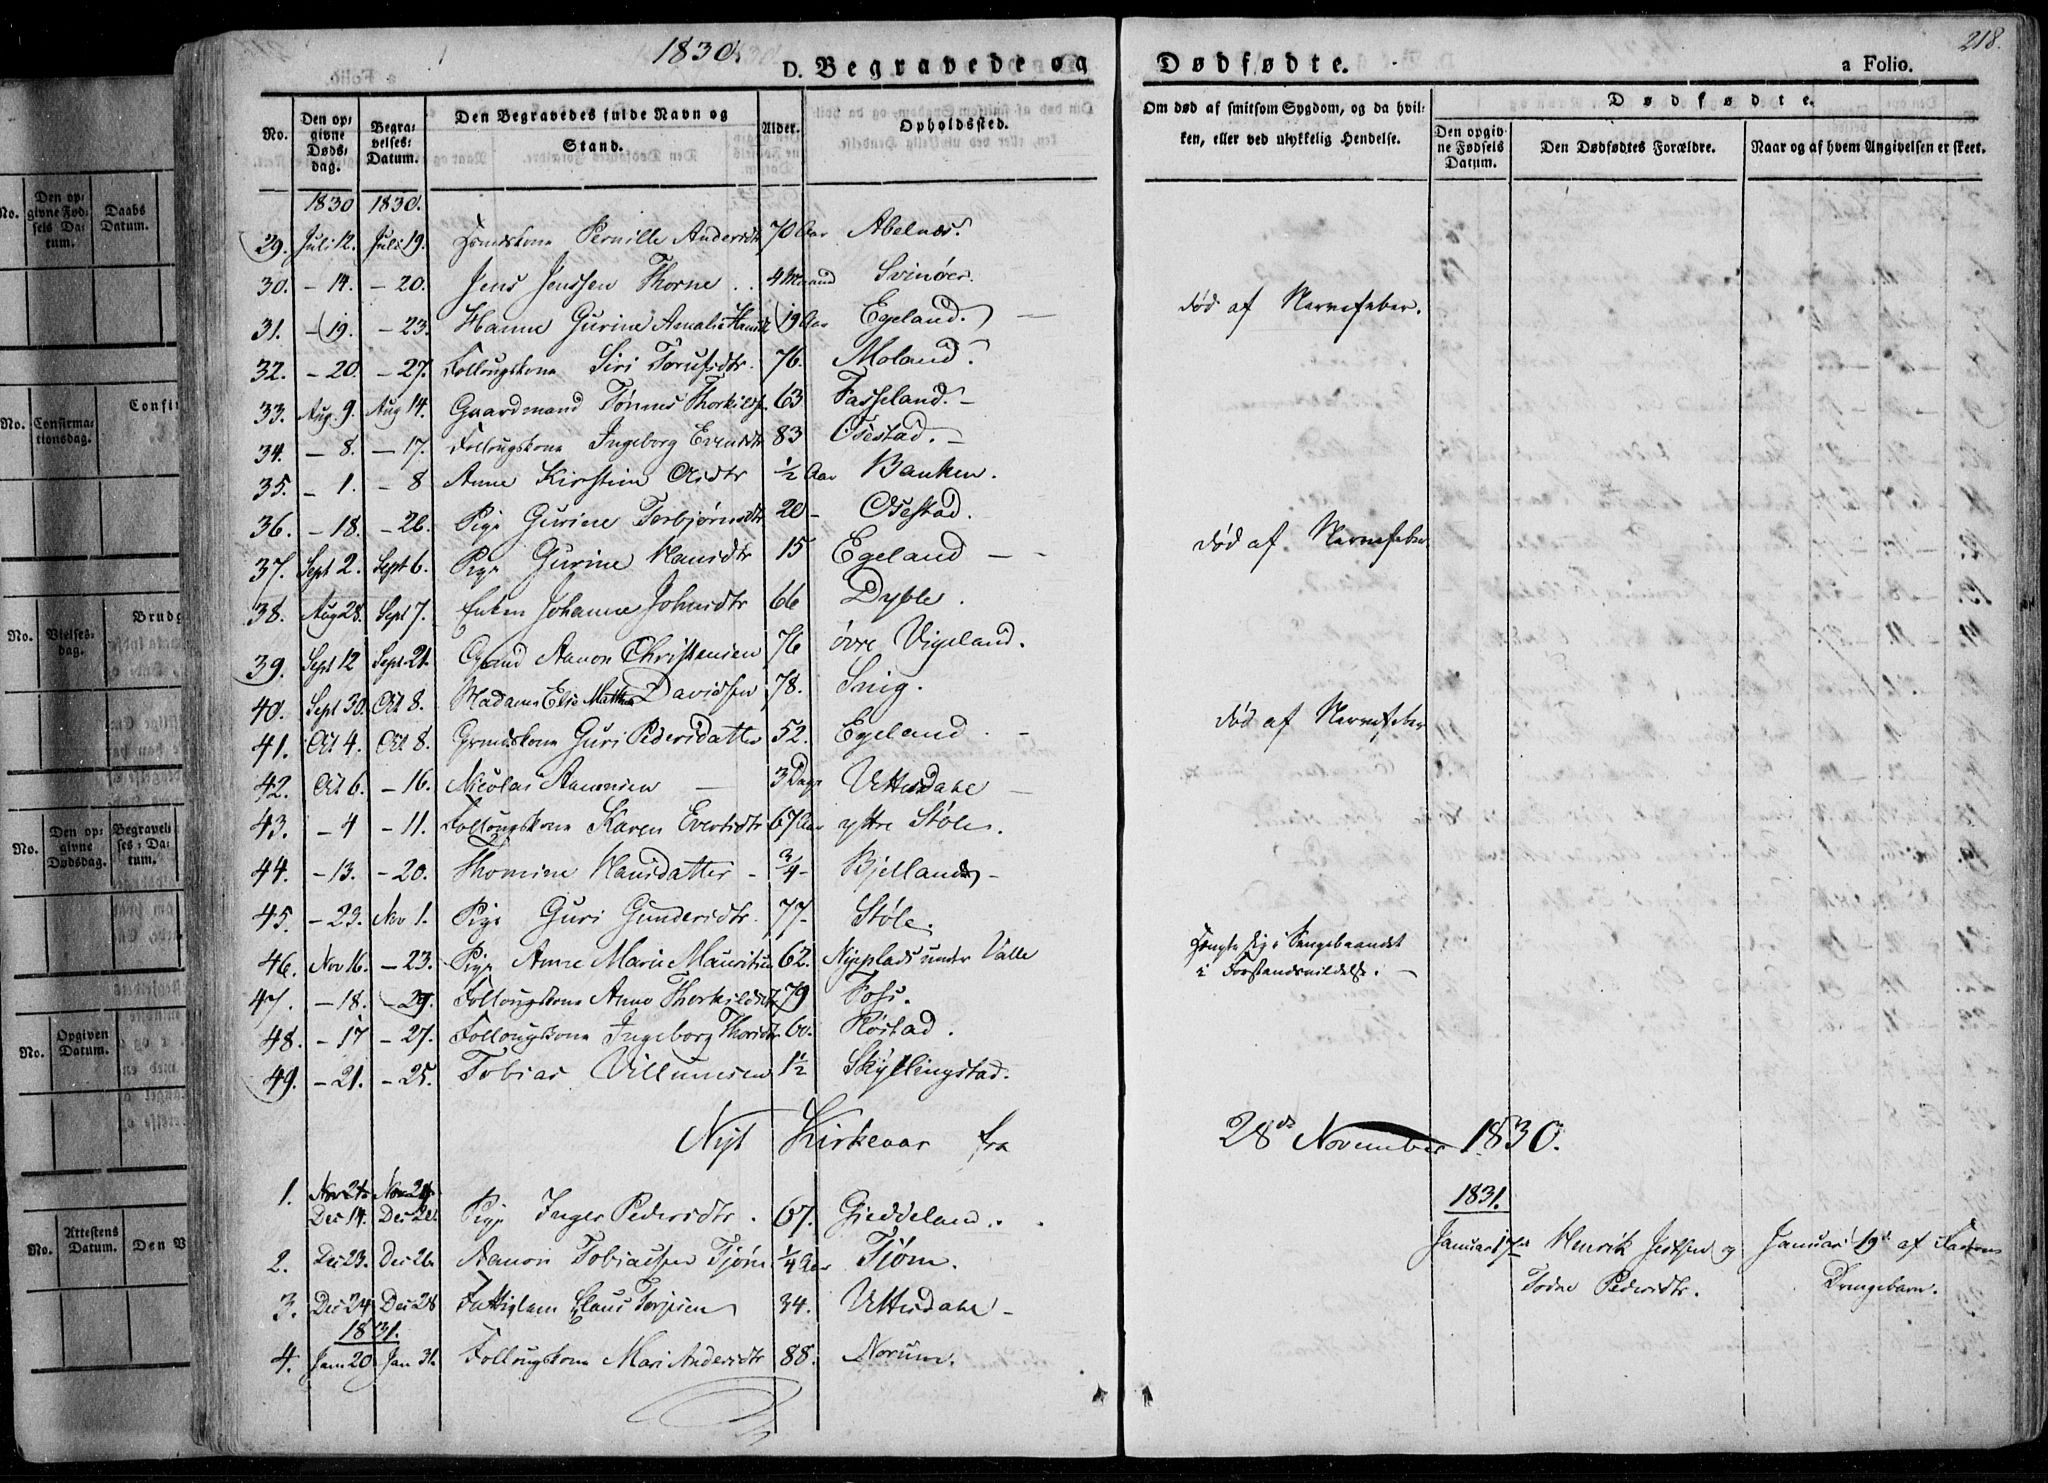 1830.
D. Begravede og Dødfødte.
218.
a Folio.
No.
Den opgivne Dødsdag.
Begravelses-Datum.
Den Begravedes fulde Navn og Stand.
Alder.
Opholdssted.
Om død af smitsom Sygdom, og da hvilken, eller ved ulykkelig Hendelse.
Dødfødte.
Den opgivne Fødsels Datum.
Den Dødfødtes Forældre.
Naar og af hvem Angivelsen er skeet.
1830 1830.
29. Juli 12. Juli 19. Pernille Andersdtr 70 Aar Abelnæs.
30. – 14. – 20. Jens Jenssen Thorne 4 Maaned Svinøer.
31. – 19. – 23. Hanne Gurine Amalie Hansdt 19 Aar Egeland. død af Nervefeber.
32. – 20. – 27. Follougskone Siri 76. Moland.
33. Aug. 9. Aug 14. Gaardmand Tønnes Thorkilds. 63 Fasseland.
34. – 8. – 17. Follougskone Ingeborg Evensdtr 83 Osestad.
35. – 1. – 8 Anne Kirstine Osdtr ½ Aar Banken.
36. – 18. – 26. Pige Gurine Torbjørnsdtr 20 – Osestad.
37. Sept 2. Sept 6. Pige Gurine Hansdtr 15 Egeland død af Nervefeber
38. Aug 28. Sept 7. Enken Johanne Johnsdtr 66 Dyble.
39. Sept 12 Sept 21. Gmd Aanon Christensen 76 øvre Vigeland.
40. Sept 30. Oct 8. Madame Else Mathea Davidsen 78. Snig.
41. Oct 4. Oct 8. Grmdskone Guri Pedersdatter 52. Egeland. død af Nervefeber
42. Oct 6. – 16. Nicolai Aanonsen 3 Dage Uttesdahl
43. – 4 – 11. Follougskone Karen Evertsdtr 67 Aar yttre Støle.
44. – 13. – 20. Thomine Hansdatter – ¾ – Bjelland
45. – 23. Nov 1. Pige Guri Gundersdtr. 77– Støle.
46. Nov 16. – 23. Pige Anne Marie Mauritsen 62. Nyeplads under Valle hengte sig i Sengebaandet
i Forstandsvildelse.
47. – 18. – 29. Follougskone Anne Thorkildsdt 79 Foss.
48. – 17 – 27. Follougskone Ingeborg Thorsdtr 60. Røstad.
49. – 21. – 25. Tobias Villumsen 1½ Skyllingstad.
Nyt Kirkeaar fra 28de November 1830.
1. Nov 21. Nov 29.
Dec 14. Dec 21. Pige Inger Pedersdtr. 67. Gieddeland.
1831.
Januar 17de Henrik Jensen og
Todne Pedersdtr.
Januar 19de af Faderen
Drengebarn.
2. Dec 23. Dec 26. Aanon Tobiassen Tjøm ¼ Aar Tjøm.
3. Dec 24 Dec 28 Fattiglem Claus Terjesen 34. Uttesdahl
1831.
4. Jan 20 Jan 31. Follougskone Mari Andersdtr 88. Norum.
No.
Den opgivne Fødsels Datum.
Daabs Datum.
No.
Confirmationsdag.
Confir
No.
Vielsesdag.
Brudg
No.
Den opgivne Dødsdag.
Begravelses-Datum.
No.
Opgiven Datum.
No.
Attestens Datum.
Den V